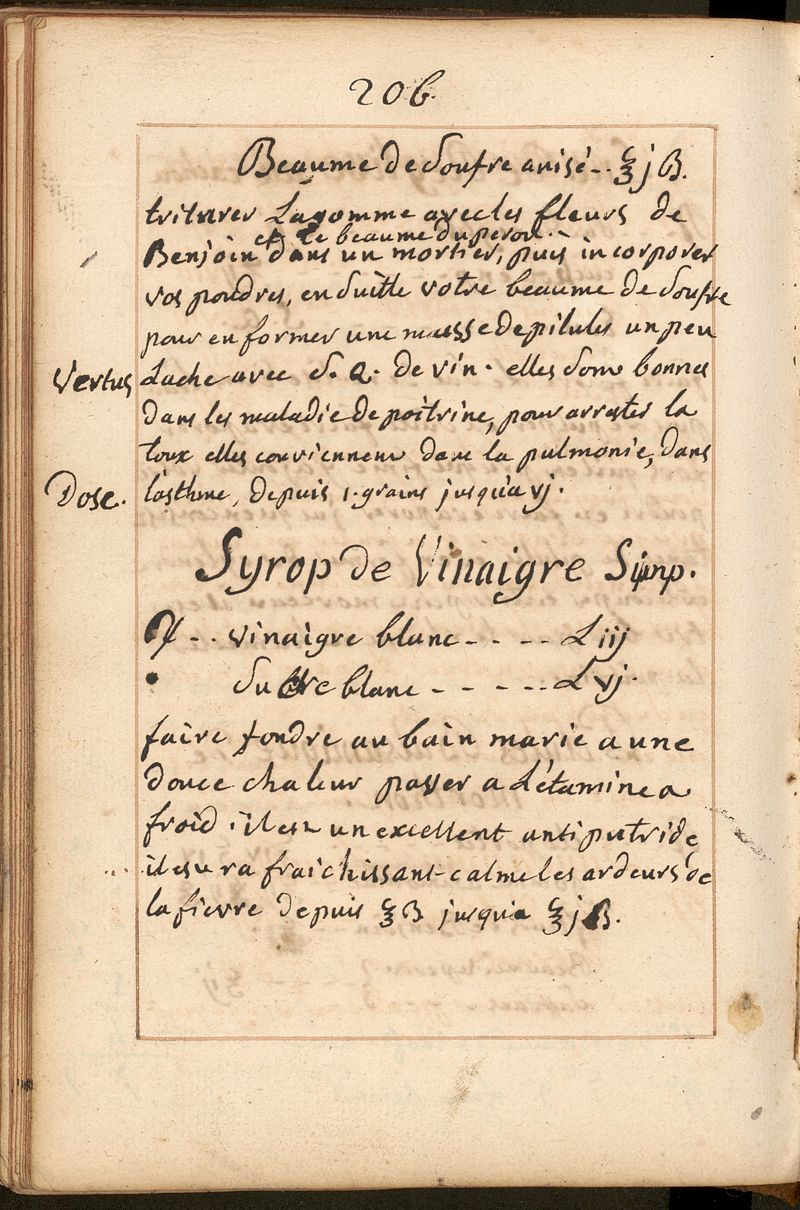 206.
Beaume de Soufre anisé -.. ℥jß.
triturer La gomme avec les fleurs de
et Le beaume du perou.
Benjoin dans un mortier, puis incorporer
vos poudres, en Suitte votre beaume de Soufre
pour en former une masse de pilules un peu
Vertus Lache avec S. Q. de vin. elles sont bonnes
dans les maladie de poitrine, pour arrester la
toux elles conviennent dans la pulmonie, dans
Dose. l'asthme, depuis 1. grains jusqu'a vj.
Syrop de Vinaigre Simp.
♃ - . . vinaigre blanc - - - - L iij
Sucre blanc - - - - - - L vj.
faire fondre au bain marie a une
douce chaleur passer a L'étamine a
froid. il est un excellent antiputride,
il est rafraichissant calme les ardeurs de
la fievre depuis ℥ß jusqu'a ℥jß.